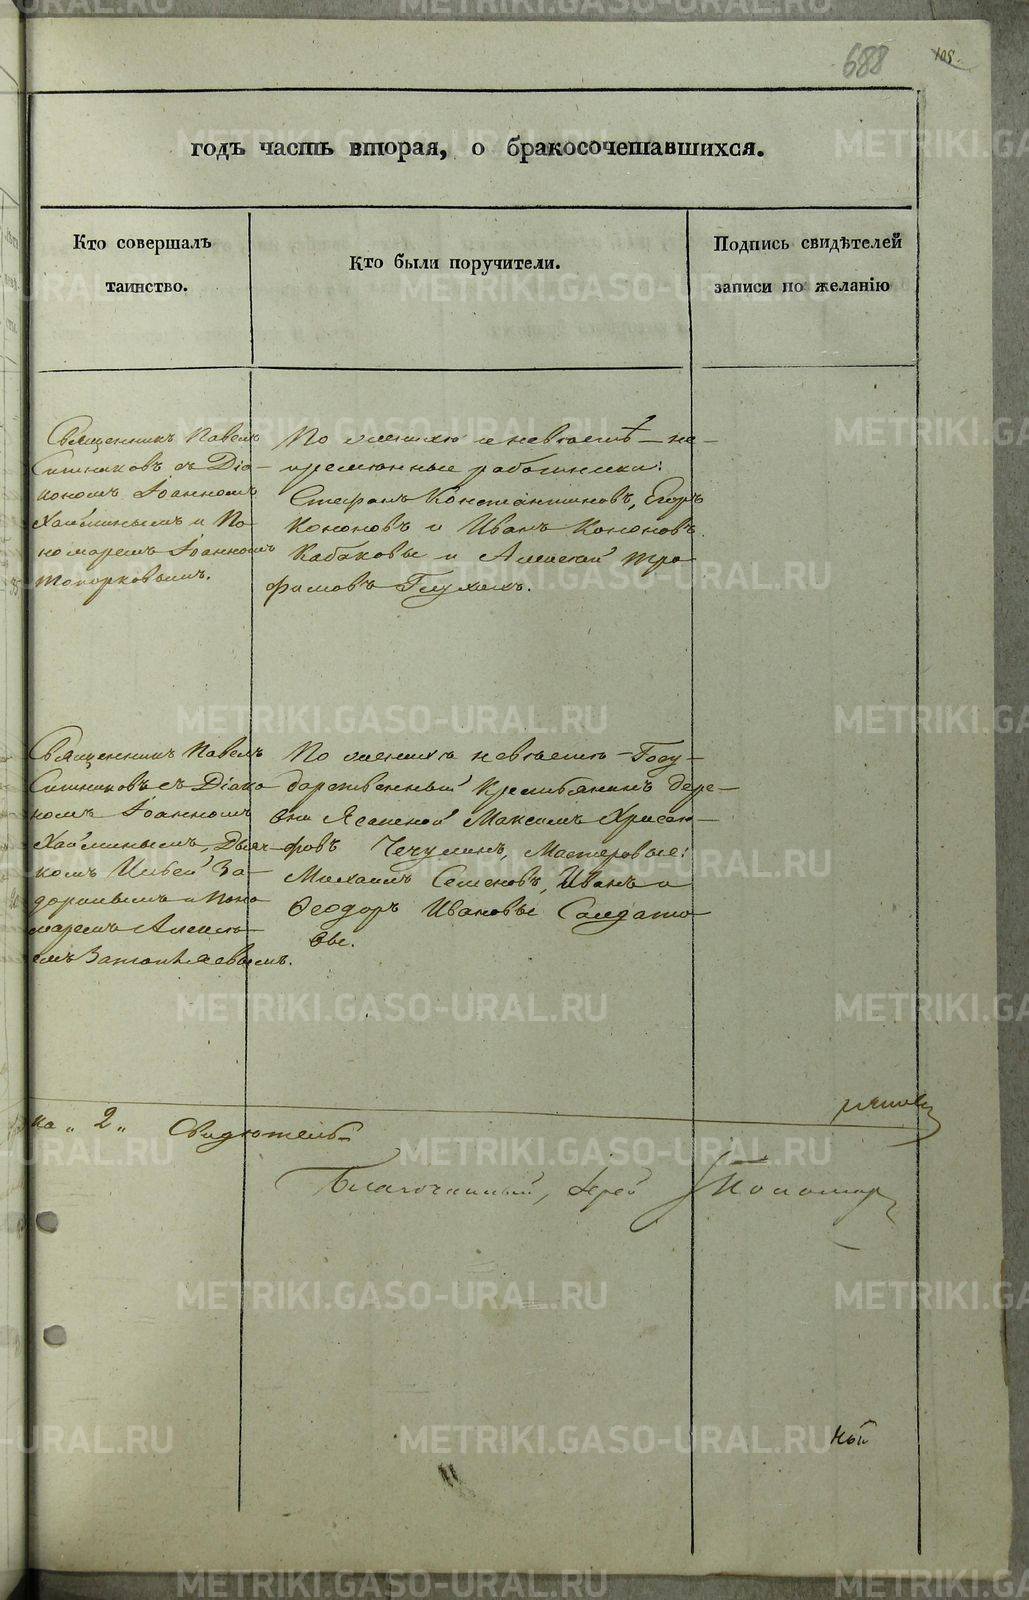 688
105.
годъ часть вторая, о бракосочетавшихся.
Кто совершалъ
таинство.
Кто были поручители.
Подпись свидѣтелей
записи по желанію
Священникъ Павелъ
Ситниковъ съ Діа-
кономъ Іоанномъ
Хайминымъ и По-
номаремъ Іоанномъ
Топорковымъ.
По женихѣ и невѣстѣ — не-
премѣнные работники:
Стефанъ Константиновъ, Егоръ
Кононовъ и Иванъ Кононовъ
Кабаковы и Алексѣй Тро
фимовъ Глухихъ.
Священникъ Павелъ
Ситниковъ съ Діако
номъ Іоанномъ
Хайминымъ, Дьяч-
комъ За-
доринымъ и Поно
маремъ Алексѣ-
емъ
По женихѣ невѣстѣ — Госу-
дарственный Крестьянинъ дере-
вни Максимъ Хрисан-
фовъ Чечулинъ, Мастеровые:
Михаилъ Семеновъ, Иванъ и
Ѳеодоръ Ивановы Солдато-
вы.
на „ 2 „ Свидѣтель-
Благочинный, Іерей Пономар
ный
METRIKI.GASO-URAL.RU